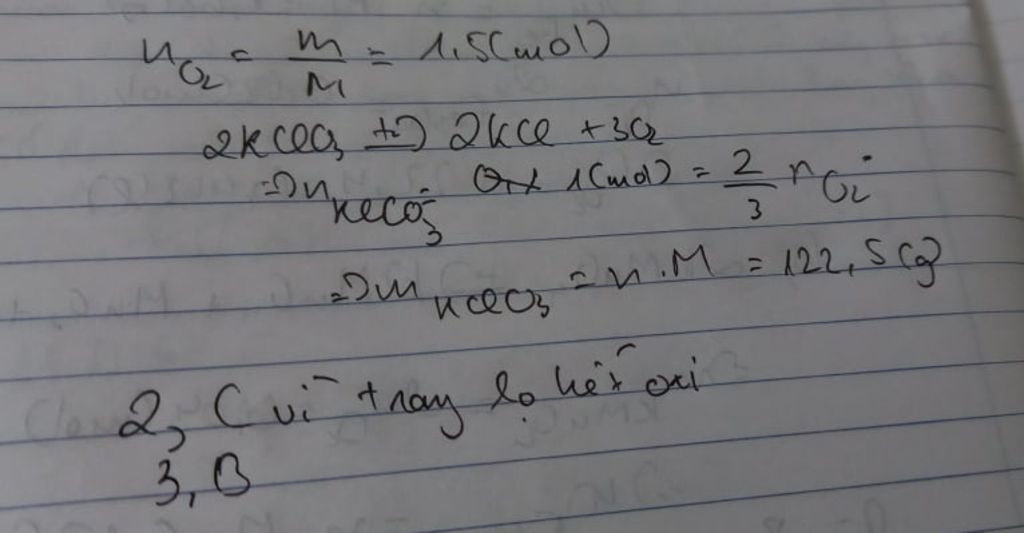 n O2 = m/M = 1,5(mol)
2KClO3 t°→ 2KCl + 3O2
=> n KClO3 1(mol) = 2/3 n O2
=> m KClO3 = n.M = 122,5(g)
2, C vì trong lọ hết oxi
3, B